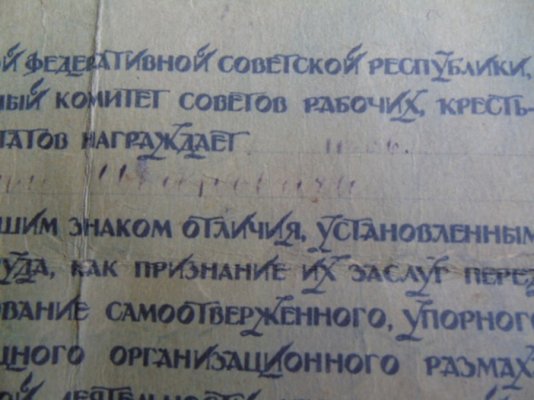 ОЙ ФЕДЕРАТИВНОЙ СОВЕТСКОЙ РЕСПУБЛИКИ,
НЫЙ КОМИТЕТ СОВЕТОВ РАБОЧИХ, КРЕСТЬ-
ТАТОВ НАГРАЖДАЕТ
ШИМ ЗНАКОМ ОТЛИЧИЯ, УСТАНОВЛЕННЫМ
УДА, КАК ПРИЗНАНИЕ ИХ ЗАСЛУГ ПЕРЕД
ОВАНИЕ САМООТВЕРЖЕННОГО, УПОРНОГО
ЩНОГО ОРГАНИЗАЦИОННОГО РАЗМАХ
ОЙ ДЕЯТЕЛЬНОСТИ